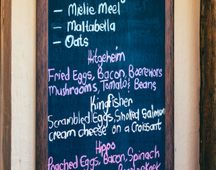 - Mielie Meel
- Maltabella
- Oats
Hitgeheim
Fried Eggs, Bacon, Boerewors
Mushrooms, Tomato, Beans
Kingfisher
Scrambled Eggs, Smoked Salmon
cream cheese on a Croissant
Hippo
Poached Eggs, Bacon, Spinach